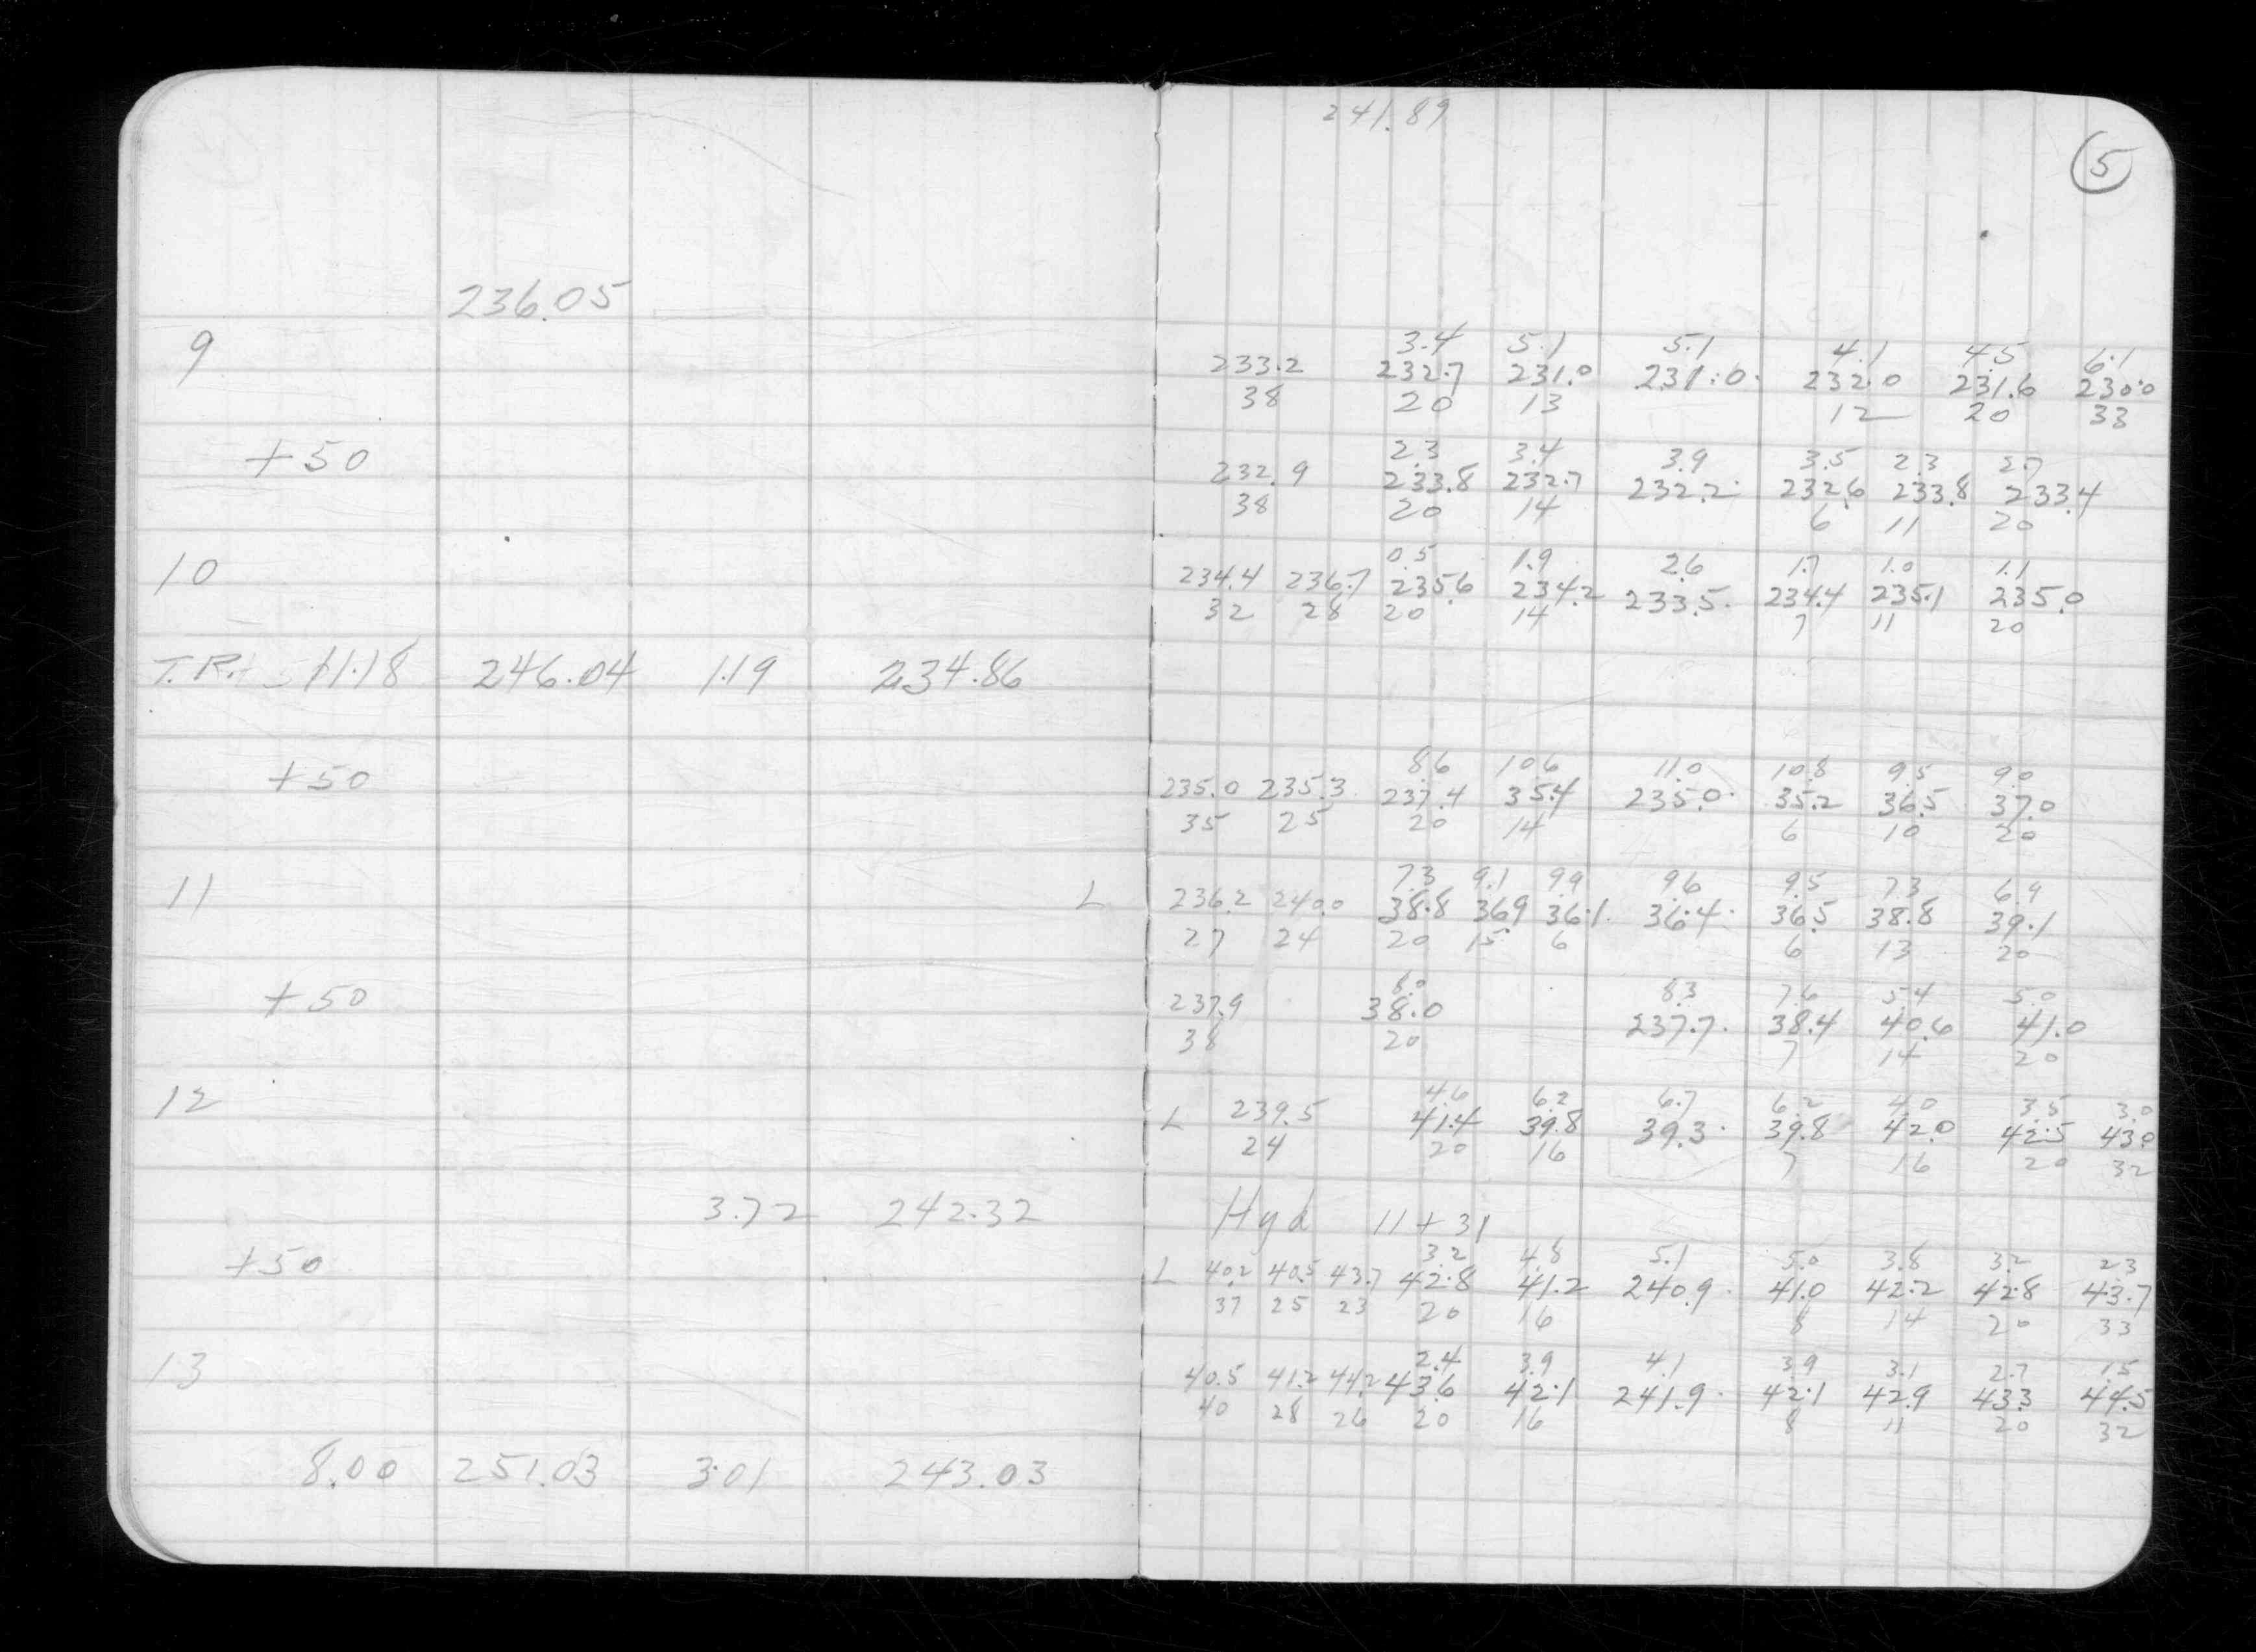 241.89
5
236.05
9
3.4 5.1 5.1 4.1 4.5 6.1
233.2 232.7 231.0 231.0 232.0 231.6 230.0
38 20 13 12 20 33
+50
2.3 3.4 3.9 3.5 2.3 2.7
232.9 233.8 232.7 232.2 232.6 233.8 233.4
38 20 14 6 11 20
10
0.5 1.9 2.6 1.7 1.0 1.1
234.4 236.7 235.6 234.2 233.5 234.4 235.1 235.0
32 28 20 14 7 11 20
T.R. 11.18 246.04 1.19 234.86
+50
8.6 10.6 11.0 10.8 9.5 9.0
235.0 235.3 237.4 35.4 235.0 35.2 36.5 37.0
35 25 20 14 6 10 20
11
7.3 9.1 9.9 9.6 9.5 7.3 6.9
L 236.2 240.0 38.8 36.9 36.1 36.4 36.5 38.8 39.1
27 24 20 15 6 6 13 20
+50
8.0 8.3 7.6 5.4 5.0
237.9 38.0 237.7 38.4 40.6 41.0
38 20 7 14 20
12
4.6 6.2 6.7 6.2 4.0 3.5 3.0
L 239.5 41.4 39.8 39.3 39.8 42.0 42.5 43.0
24 20 16 7 16 20 32
3.72 242.32 Hyd 11+31
+50
3.2 4.8 5.1 5.0 3.8 3.2 2.3
L 40.2 40.5 43.7 42.8 41.2 240.9 41.0 42.2 42.8 43.7
37 25 23 20 16 8 14 20 33
13
2.4 3.9 4.1 3.9 3.1 2.7 1.5
40.5 41.2 44.2 43.6 42.1 241.9 42.1 42.9 43.3 44.5
40 28 26 20 16 8 11 20 32
8.00 251.03 3.01 243.03